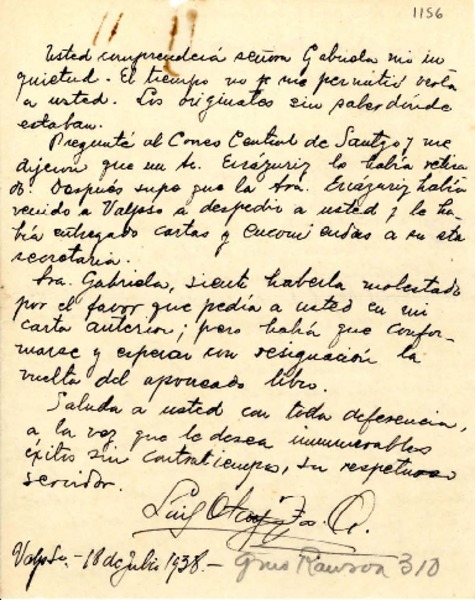 1156
Usted comprenderá señora Gabriela mi in
quietud. El tiempo no me permitió verla
a usted. Los originales sin saber dónde
estaban.
Pregunté al Correo Central de Santgo y me
dijeron que un Sr. Errázuriz lo había retira
do. Después supe que la Sra. Errázuriz había
venido a Valpso a despedir a usted y le ha-
bía entregado cartas y encomiendas a su sta
secretaria.
Sra. Gabriela, siento haberla molestado
por el favor que pedía a usted en mi
carta anterior; pero había que confor-
marse y esperar con resignación la
vuelta del aporreado libro.
Saluda a usted con toda deferencia,
a la vez que le desea innumerables
éxitos sin contratiempos, su respetuoso
servidor.
Luis
Valpso. - 18 de Julio 1938. - Rawson 310